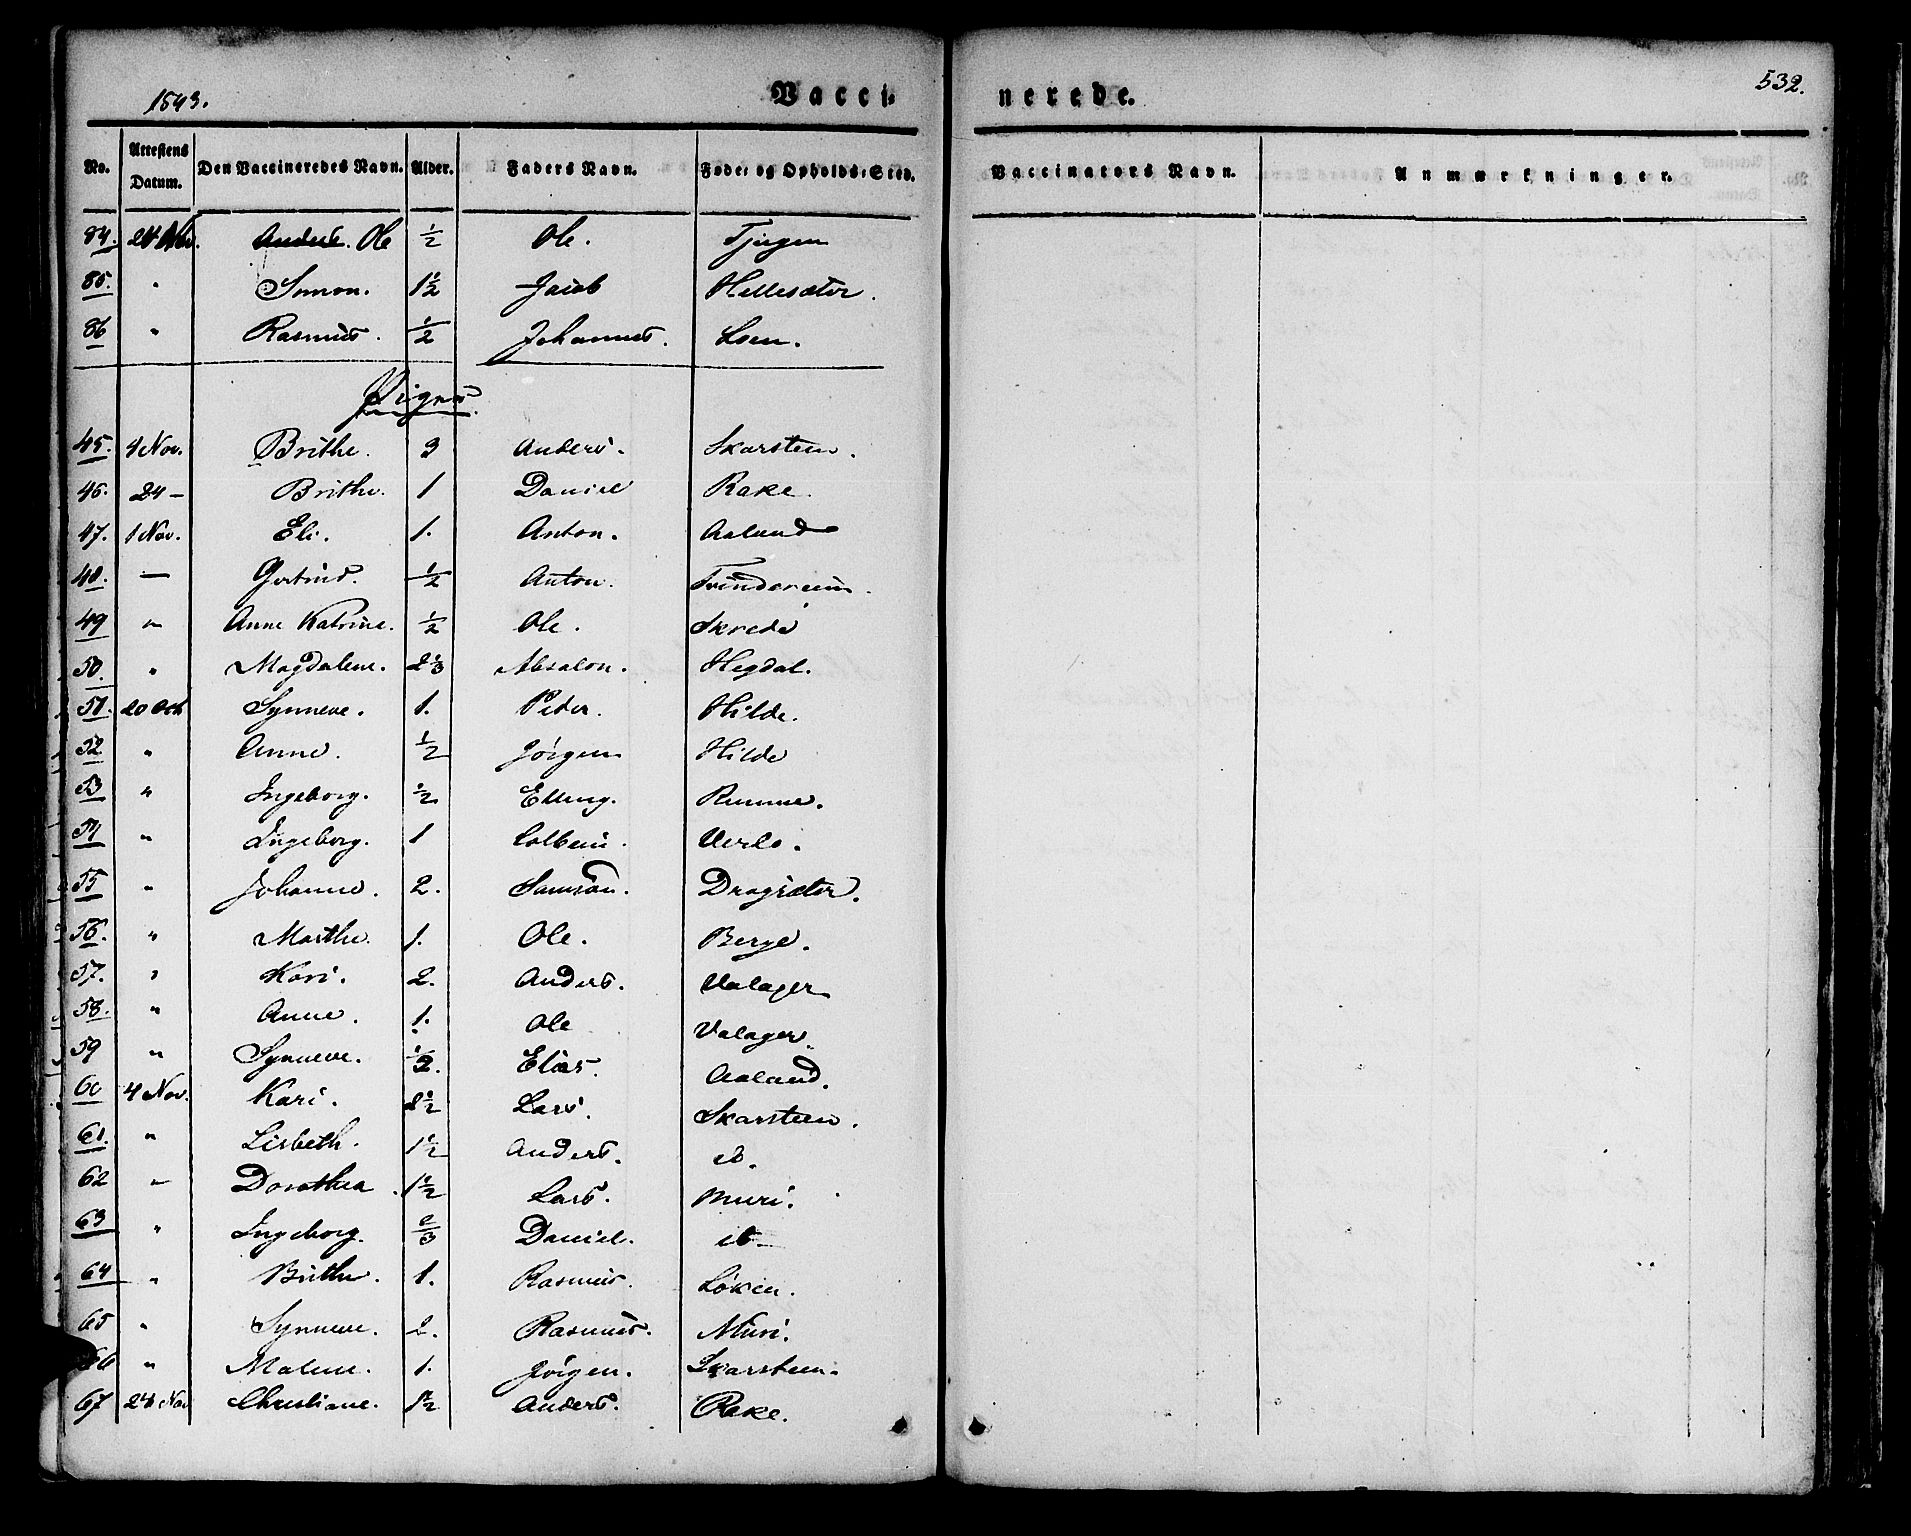 1843. Vacci-
nerede. 532.
No. Attestens Datum. Den Vaccineredes Navn. Alder. Faders Navn. Føde- og Opholds-Sted. Vaccinators Navn. Anmærkninger.
84. 24 Nov. Ole ½ Ole. Tjugen
85. " Simon. 1½ Jacob Hellesæter.
86 " Rasmus. ½ Johannes. Loen.
Piger.
45. 4 Nov. Brithe. 3 Anders. Skarsteen.
46. 24 – Brithe. 1 Daniel Rake.
47. 1 Nov. Eli. 1. Anton. Aaland
48. — Gertrud. ½ Anton. Tvindereim.
49 " Anne Katrine. ½ Ole. Skrede
50. " Magdalene. 2⅓ Absalon. Hegdal.
51. 20 Oct Synneve. 1. Peder. Hilde.
52 " Anne. ½ Jørgen Hilde
53 " Ingeborg. ½ Elling. Rumme.
54 " Ingeborg. 1 Colbein. Verlo.
55 " Johanne. 2. Samson. Dragsæter.
56. " Marthe. 1. Ole. Berge.
57. " Kari. 2. Anders. Valager
58. " Anne. 1. Ole Valager.
59 " Synneve. ½. Elias. Aaland.
60 4 Nov. Kari. 2½ Lars. Skarsteen.
61. " Lisbeth. 1½ Anders. ib.
62 " Dorothea. 1½ Lars. Muri.
63 " Ingeborg. ⅔ Daniel. ib
64 " Brithe. 1. Rasmus. Løken.
65 " Synneve. 2. Rasmus. Muri.
66 " Malene. 1. Jørgen. Skarsteen.
67 24 Nov Christiane. 1½ Anders. Rake.